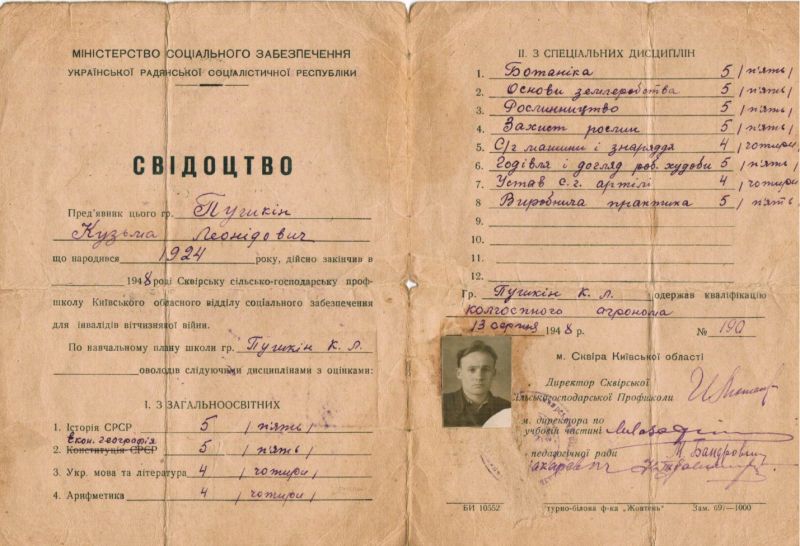 МІНІСТЕРСТВО СОЦІАЛЬНОГО ЗАБЕЗПЕЧЕННЯ
УКРАЇНСЬКОЇ РАДЯНСЬКОЇ СОЦІАЛІСТИЧНОЇ РЕСПУБЛІКИ
СВІДОЦТВО
Пред'явник цього гр. Пушкін
Кузьма Леонідович
що народився 1924 року, дійсно закінчив в
1948 році Сквірську сільсько-господарську проф-
школу Київського обласного відділу соціального забезпечення
для інвалідів вітчизняної війни.
По навчальному плану школи гр. Пушкін К. Л.
оволодів слідуючими дисциплінами з оцінками:
І. З ЗАГАЛЬНООСВІТНИХ
1. Історія СРСР 5 (п'ять)
Екон. географія
2. Конституція СРСР 5 (п'ять)
3. Укр. мова та література 4 (чотири)
4. Арифметика 4 (чотири)
ІІ. З СПЕЦІАЛЬНИХ ДИСЦИПЛІН
1. Ботаніка 5 (п'ять)
2. Основи землеробства 5 (п'ять)
3. Рослинництво 5 (п'ять)
4. Захист рослин 5 (п'ять)
5. С/г машини і знаряддя 4 (чотири)
6. Годівля і догляд роб. худоби 5 (п'ять)
7. Устав с.г. артілі 4 (чотири)
8. Виробнича практика 5 (п'ять)
9.
10.
11.
12.
Гр. Пушкін К. Л. одержав кваліфікацію
колгоспного агронома
13 серпня 1948 р. № 190
м. Сквіра Київської області
Директор Сквірської
сільськогосподарської Профшколи
м. директора по
учбовій частині
педагогічної ради М. Бандрович
БИ 10552 турно-білова ф-ка „Жовтень" Зам. 697—1000